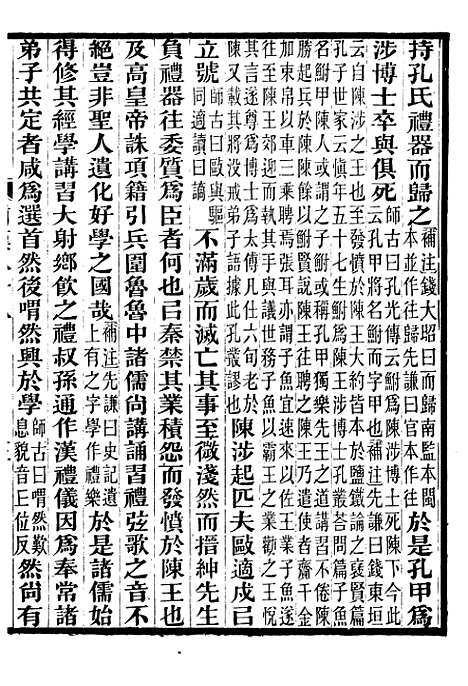 持孔氏禮器而歸之補注錢大昭曰而歸南監本閩本並作往歸先謙曰官本作往於是孔甲爲
涉博士卒與俱死師古曰孔光傳云鮒爲陳涉博士死陳下今此云孔甲將名鮒而字甲也補注先謙曰錢東垣
云自陳涉之王也至發憤於陳王大約皆本於鹽鐵論之襃賢篇孔子世家云愼年五十七生鮒爲陳王涉博士孔叢答問篇子魚
名鮒甲陳人或謂之子鮒或稱孔甲獨樂先王之道講習不倦陳勝起兵於陳陳餘賢說陳王往聘之陳王乃遣使者齎千金
加束帛以車三乘聘焉張耳亦謂子魚宜速來以集王業子魚遂往至陳王郊迎而執其手議世務子魚以霸王之業勸之王悅
其言遂尊以爲太傅凡仕六旬老於陳又載其將沒戒弟子語據此孔叢謬也陳涉起匹夫敺適戍㠯
立號師古曰敺與驅同適讀曰謫不滿歲而滅亡其事至微淺然而搢紳先生
負禮器往委質爲臣者何也㠯秦禁其業積怨而發憤於陳王也
及高皇帝誅項籍引兵圍魯魯中諸儒尚講誦習禮弦歌之音不
絕豈非聖人遺化好學之國哉補注先謙曰史記遺上有之字學作禮樂於是諸儒始
得修其經學講習大射鄉飲之禮叔孫通作漢禮儀因爲奉常諸
弟子共定者咸爲選首然後喟然興於學師古曰喟然歎息貌音丘位反然尚有